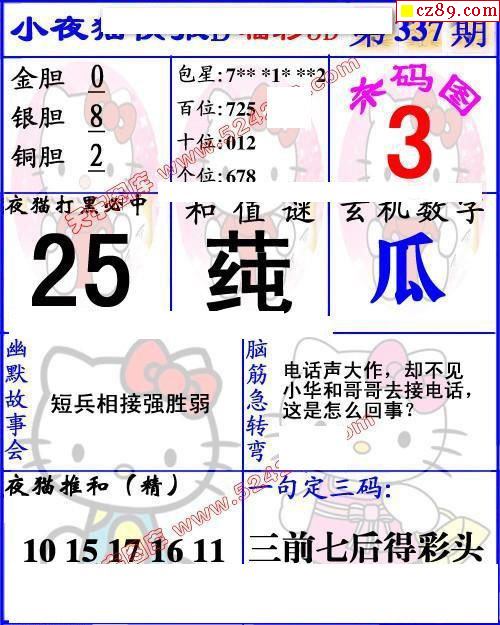 cz89.com
小夜猫
第337期
金胆 0
银胆 8
铜胆 2
包星:7** *1* **2
百位:725
十位:012
个位:678
杀码图
3
夜猫打黑必中
25
和值谜
莼
玄机数字
瓜
幽默故事会
短兵相接强胜弱
脑筋急转弯
电话声大作,却不见
小华和哥哥去接电话,
这是怎么回事?
夜猫推和(精)
10 15 17 16 11
一句定三码:
三前七后得彩头